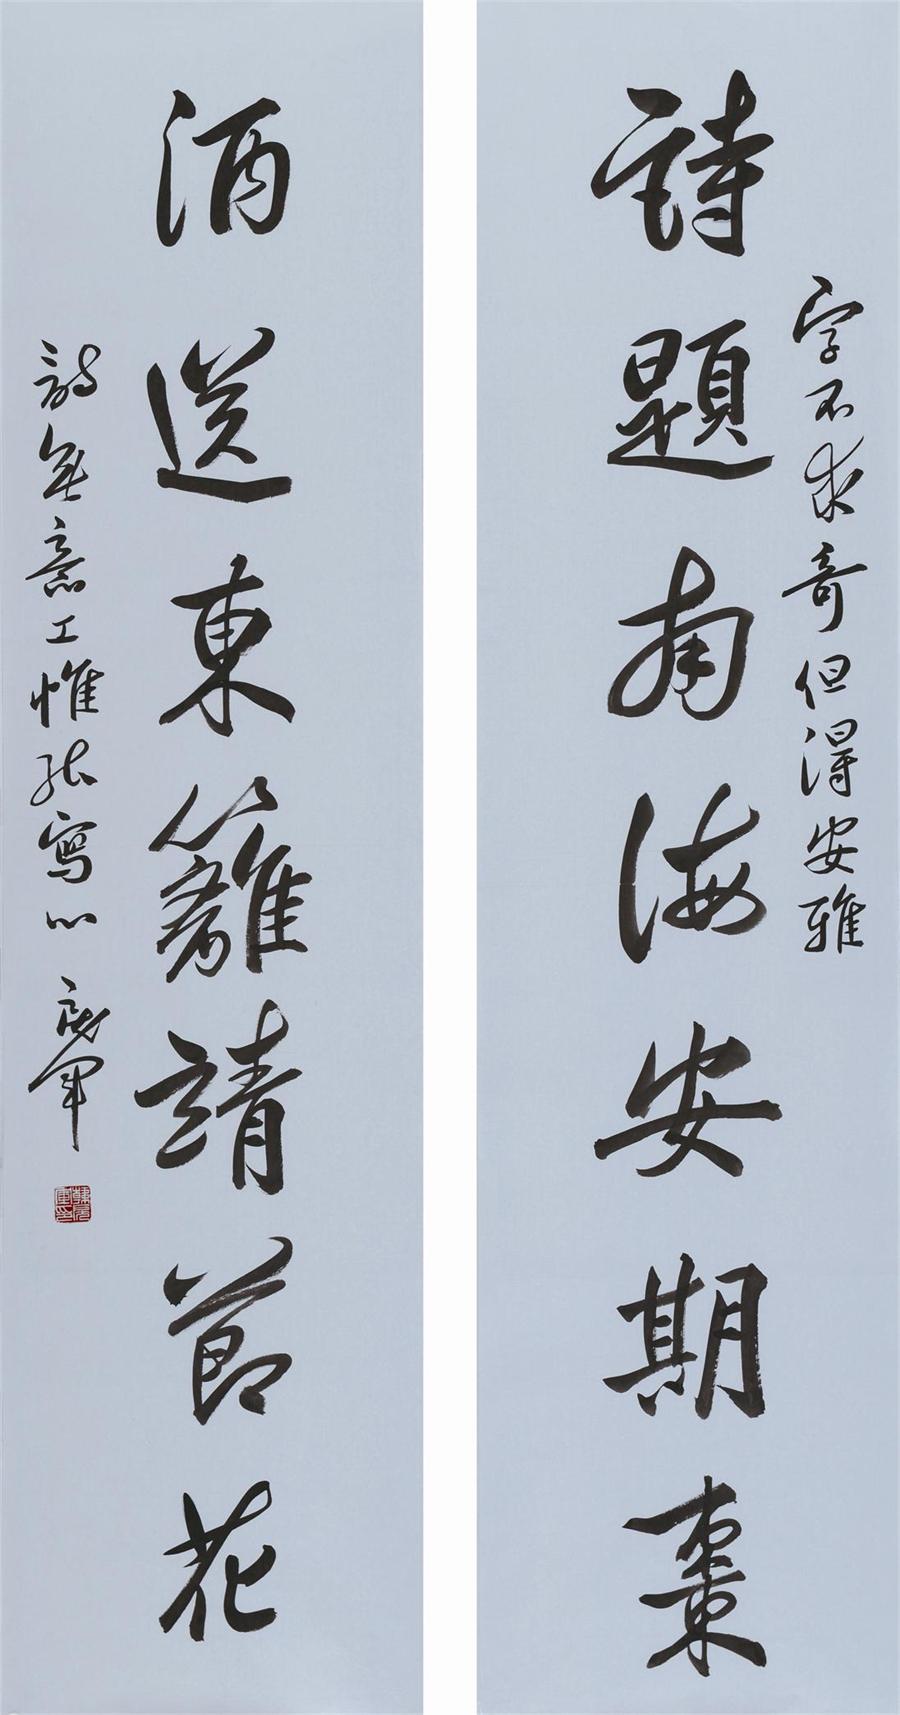 詩題南海安期棗
字不求奇但得安雅
酒送東籬靖節花
詩無意工惟能寫心